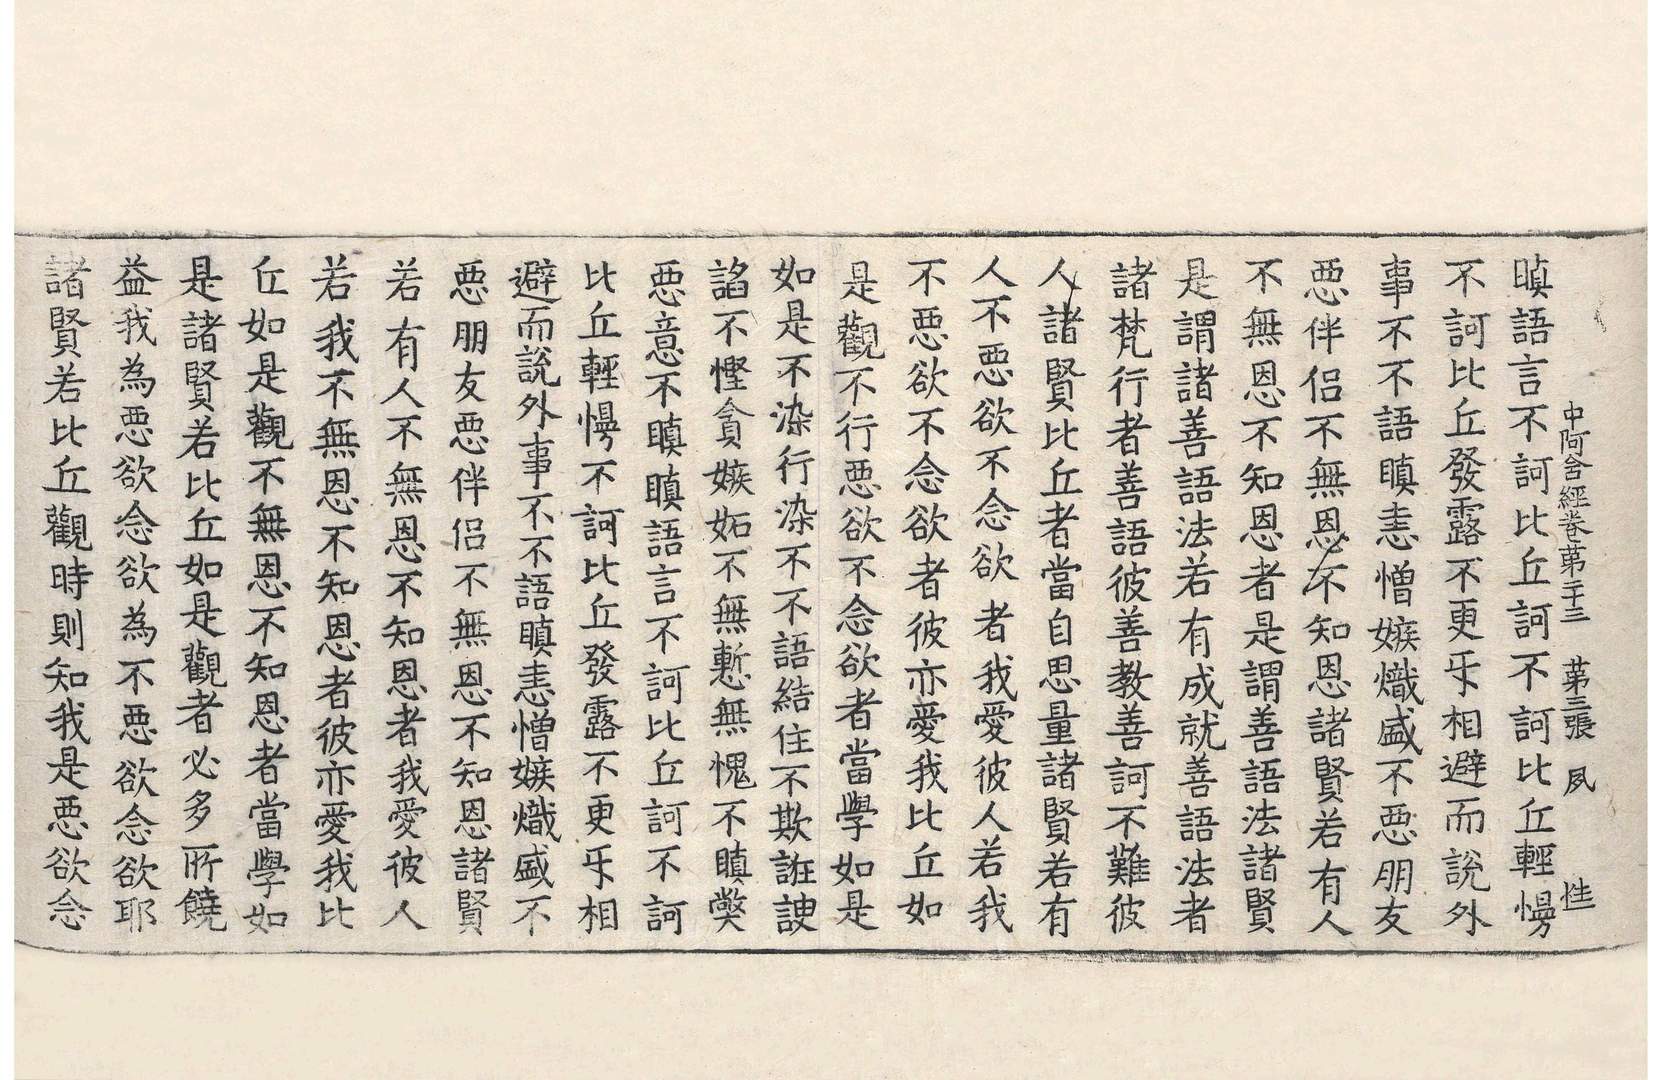 中阿含經卷第二十三 第三張 夙 性
瞋語言不訶比丘訶不訶比丘輕慢
不訶比丘發露不更㸦相避而說外
事不不語瞋恚憎嫉熾盛不惡朋友
惡伴侶不無恩不知恩諸賢若有人
不無恩不知恩者是謂善語法諸賢
是謂諸善語法若有成就善語法者
諸梵行者善語彼善教善訶不難彼
人諸賢比丘者當自思量諸賢若有
人不惡欲不念欲者我愛彼人若我
不惡欲不念欲者彼亦愛我比丘如
是觀不行惡欲不念欲者當學如是
如是不染行染不不語結住不欺誑諛
諂不慳貪嫉妬不無慙無愧不瞋獘
惡意不瞋瞋語言不訶比丘訶不訶
比丘輕慢不訶比丘發露不更㸦相
避而說外事不不語瞋恚憎嫉熾盛不
惡朋友惡伴侶不無恩不知恩諸賢
若有人不無恩不知恩者我愛彼人
若我不無恩不知恩者彼亦愛我比
丘如是觀不無恩不知恩者當學如
是諸賢若比丘如是觀者必多所饒
益我為惡欲念欲為不惡欲念欲耶
諸賢若比丘觀時則知我是惡欲念